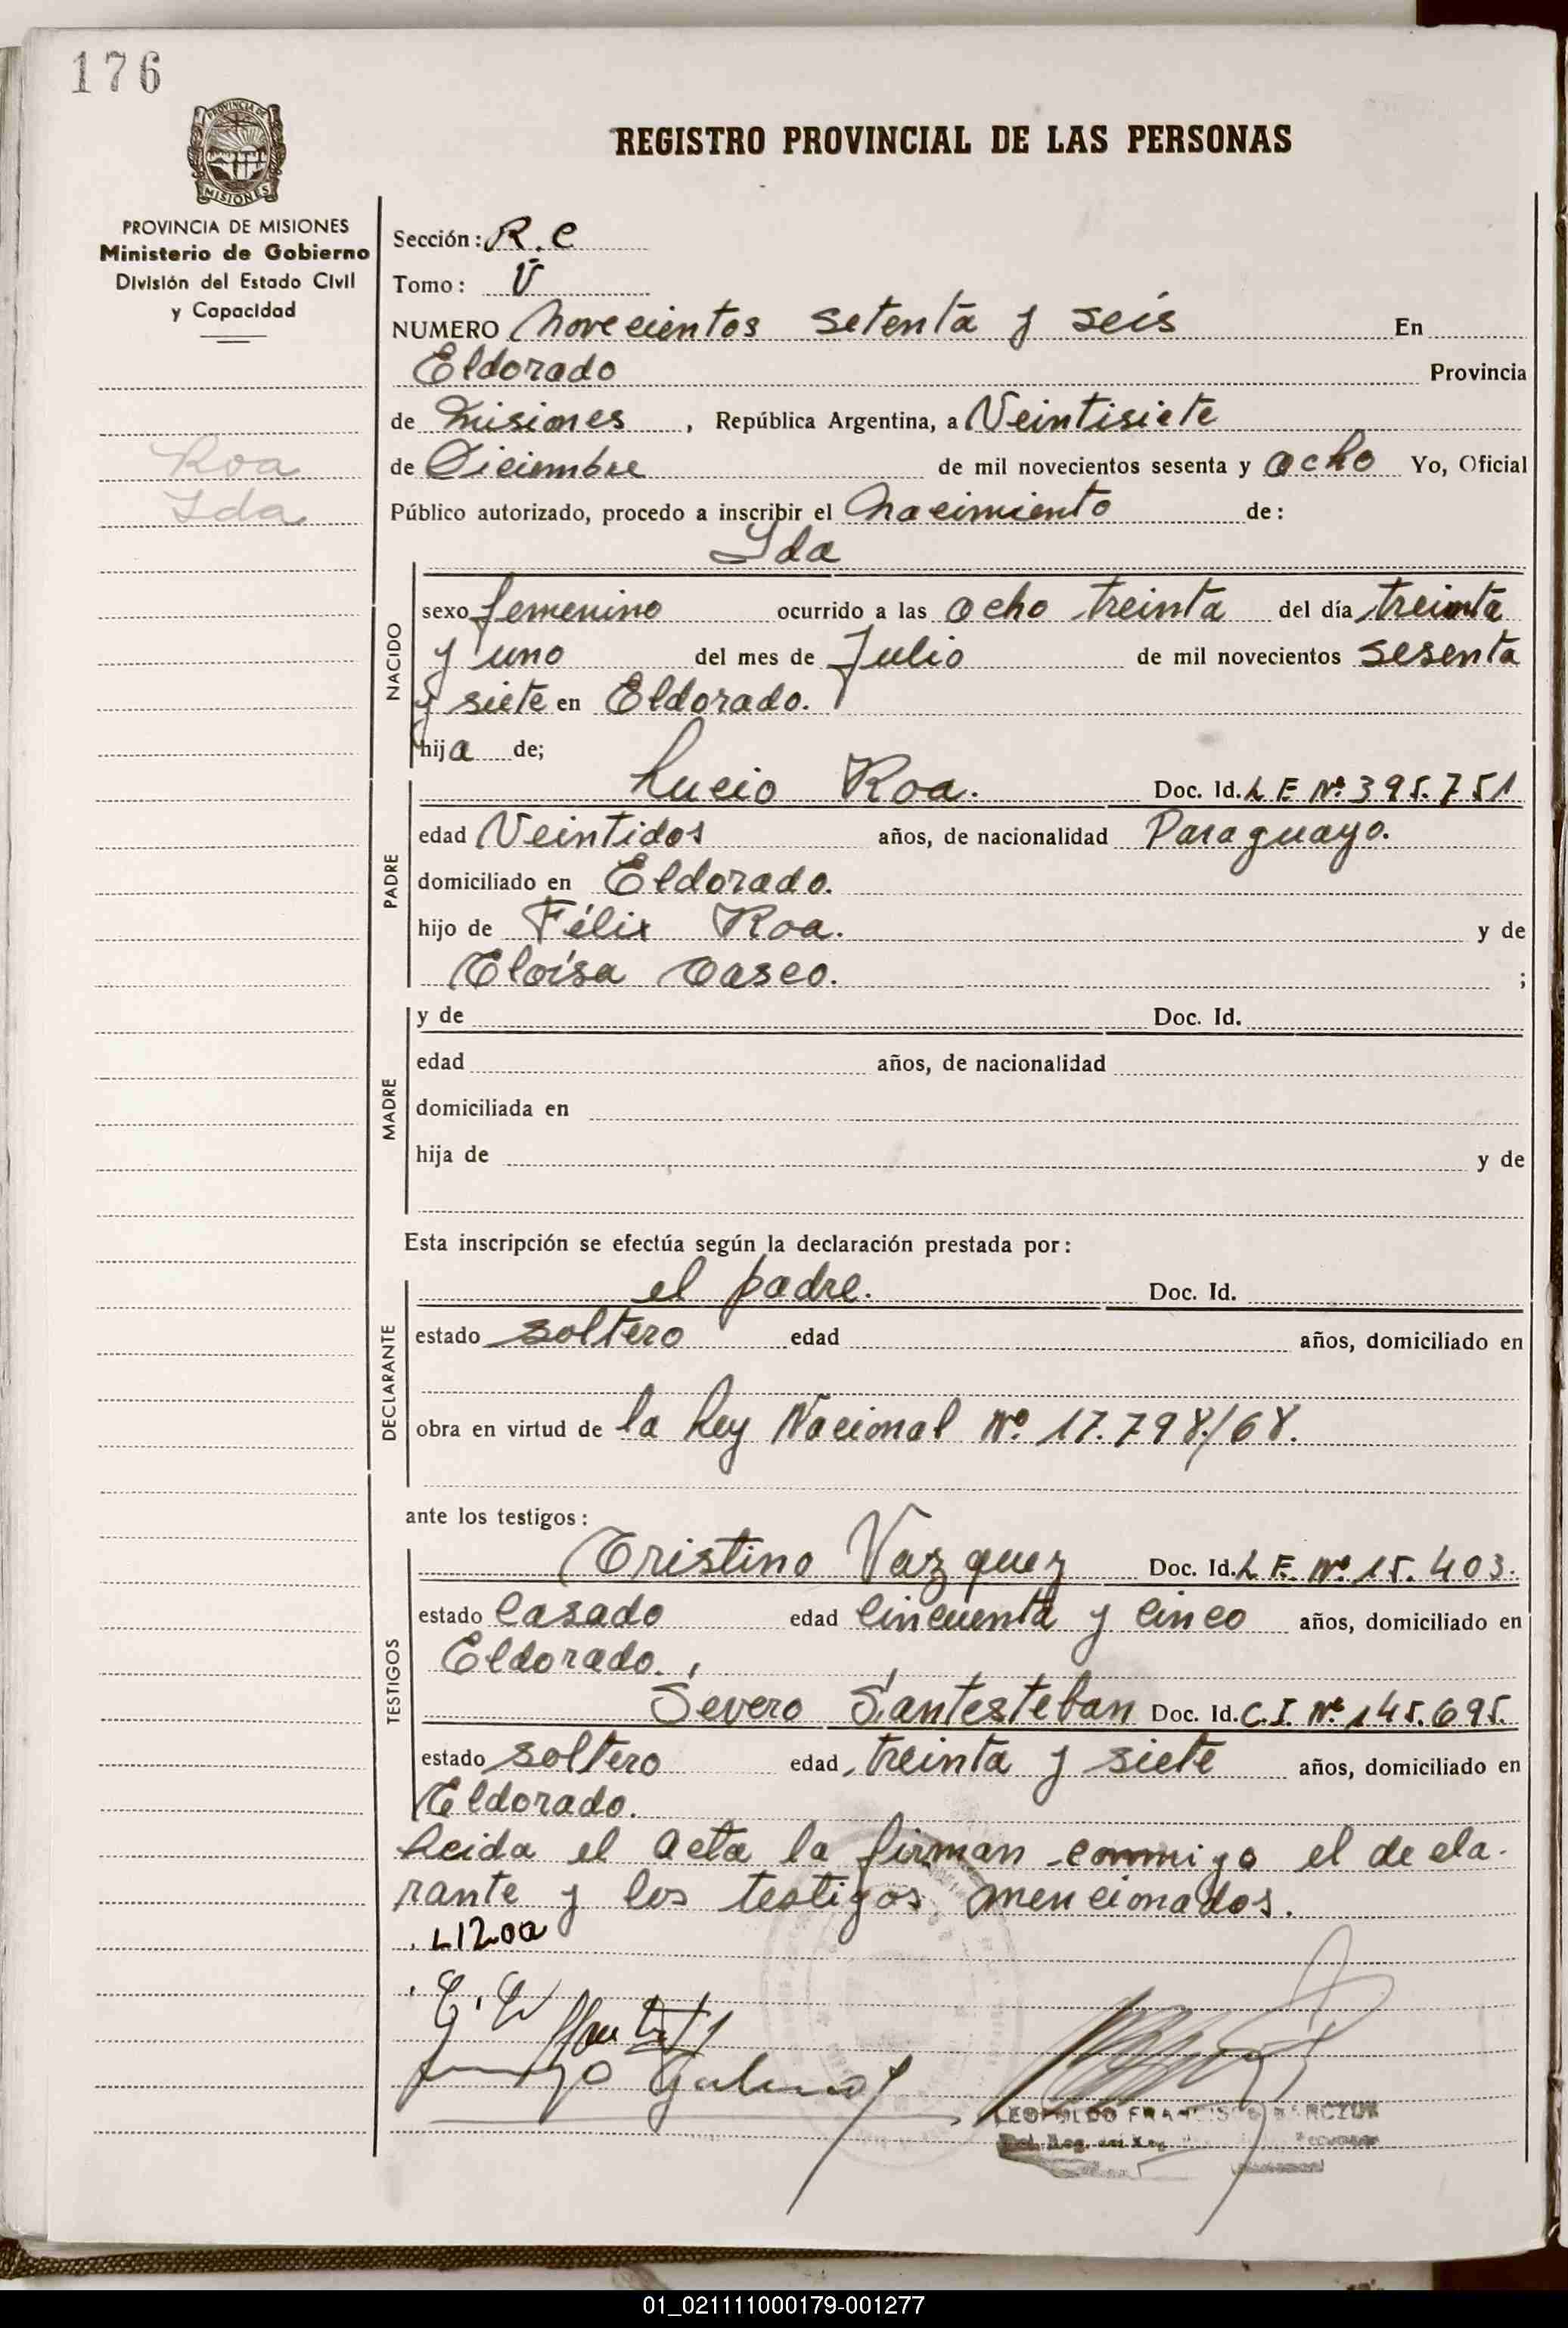 176
PROVINCIA DE
MISIONES
REGISTRO PROVINCIAL DE LAS PERSONAS
PROVINCIA DE MISIONES
Ministerio de Gobierno
División del Estado Civil
y Capacidad
Roa
Ida
Sección: R.C
Tomo: V
NUMERO Novecientos setenta y seis En
Eldorado Provincia
de Misiones, República Argentina, a Veintisiete
de Diciembre de mil novecientos sesenta y ocho Yo, Oficial
Público autorizado, procedo a inscribir el nacimiento de:
Ida
NACIDO
sexo femenino ocurrido a las ocho treinta del día treinta
y uno del mes de Julio de mil novecientos sesenta
y siete en Eldorado.
hija de;
PADRE
Lucio Roa. Doc. Id. L E Nº 395.751
edad Veintidos años, de nacionalidad Paraguayo.
domiciliado en Eldorado.
hijo de Félix Roa. y de
Eloísa Casco. ;
MADRE
y de Doc. Id.
edad años, de nacionalidad
domiciliada en
hija de y de
Esta inscripción se efectúa según la declaración prestada por:
DECLARANTE
el padre. Doc. Id.
estado soltero edad años, domiciliado en
obra en virtud de la Ley Nacional Nº 17.798/68.
ante los testigos:
TESTIGOS
Cristino Vazquez Doc. Id. L E. Nº 15.403.
estado Casado edad Cincuenta y cinco años, domiciliado en
Eldorado.
Severo Santesteban Doc. Id. C.I. Nº 145.695.
estado soltero edad treinta y siete años, domiciliado en
Eldorado.
Leida el acta la firman conmigo el decla-
rante y los testigos mencionados.
L1200
LEOPOLDO FRANCISCO
01_021111000179-001277